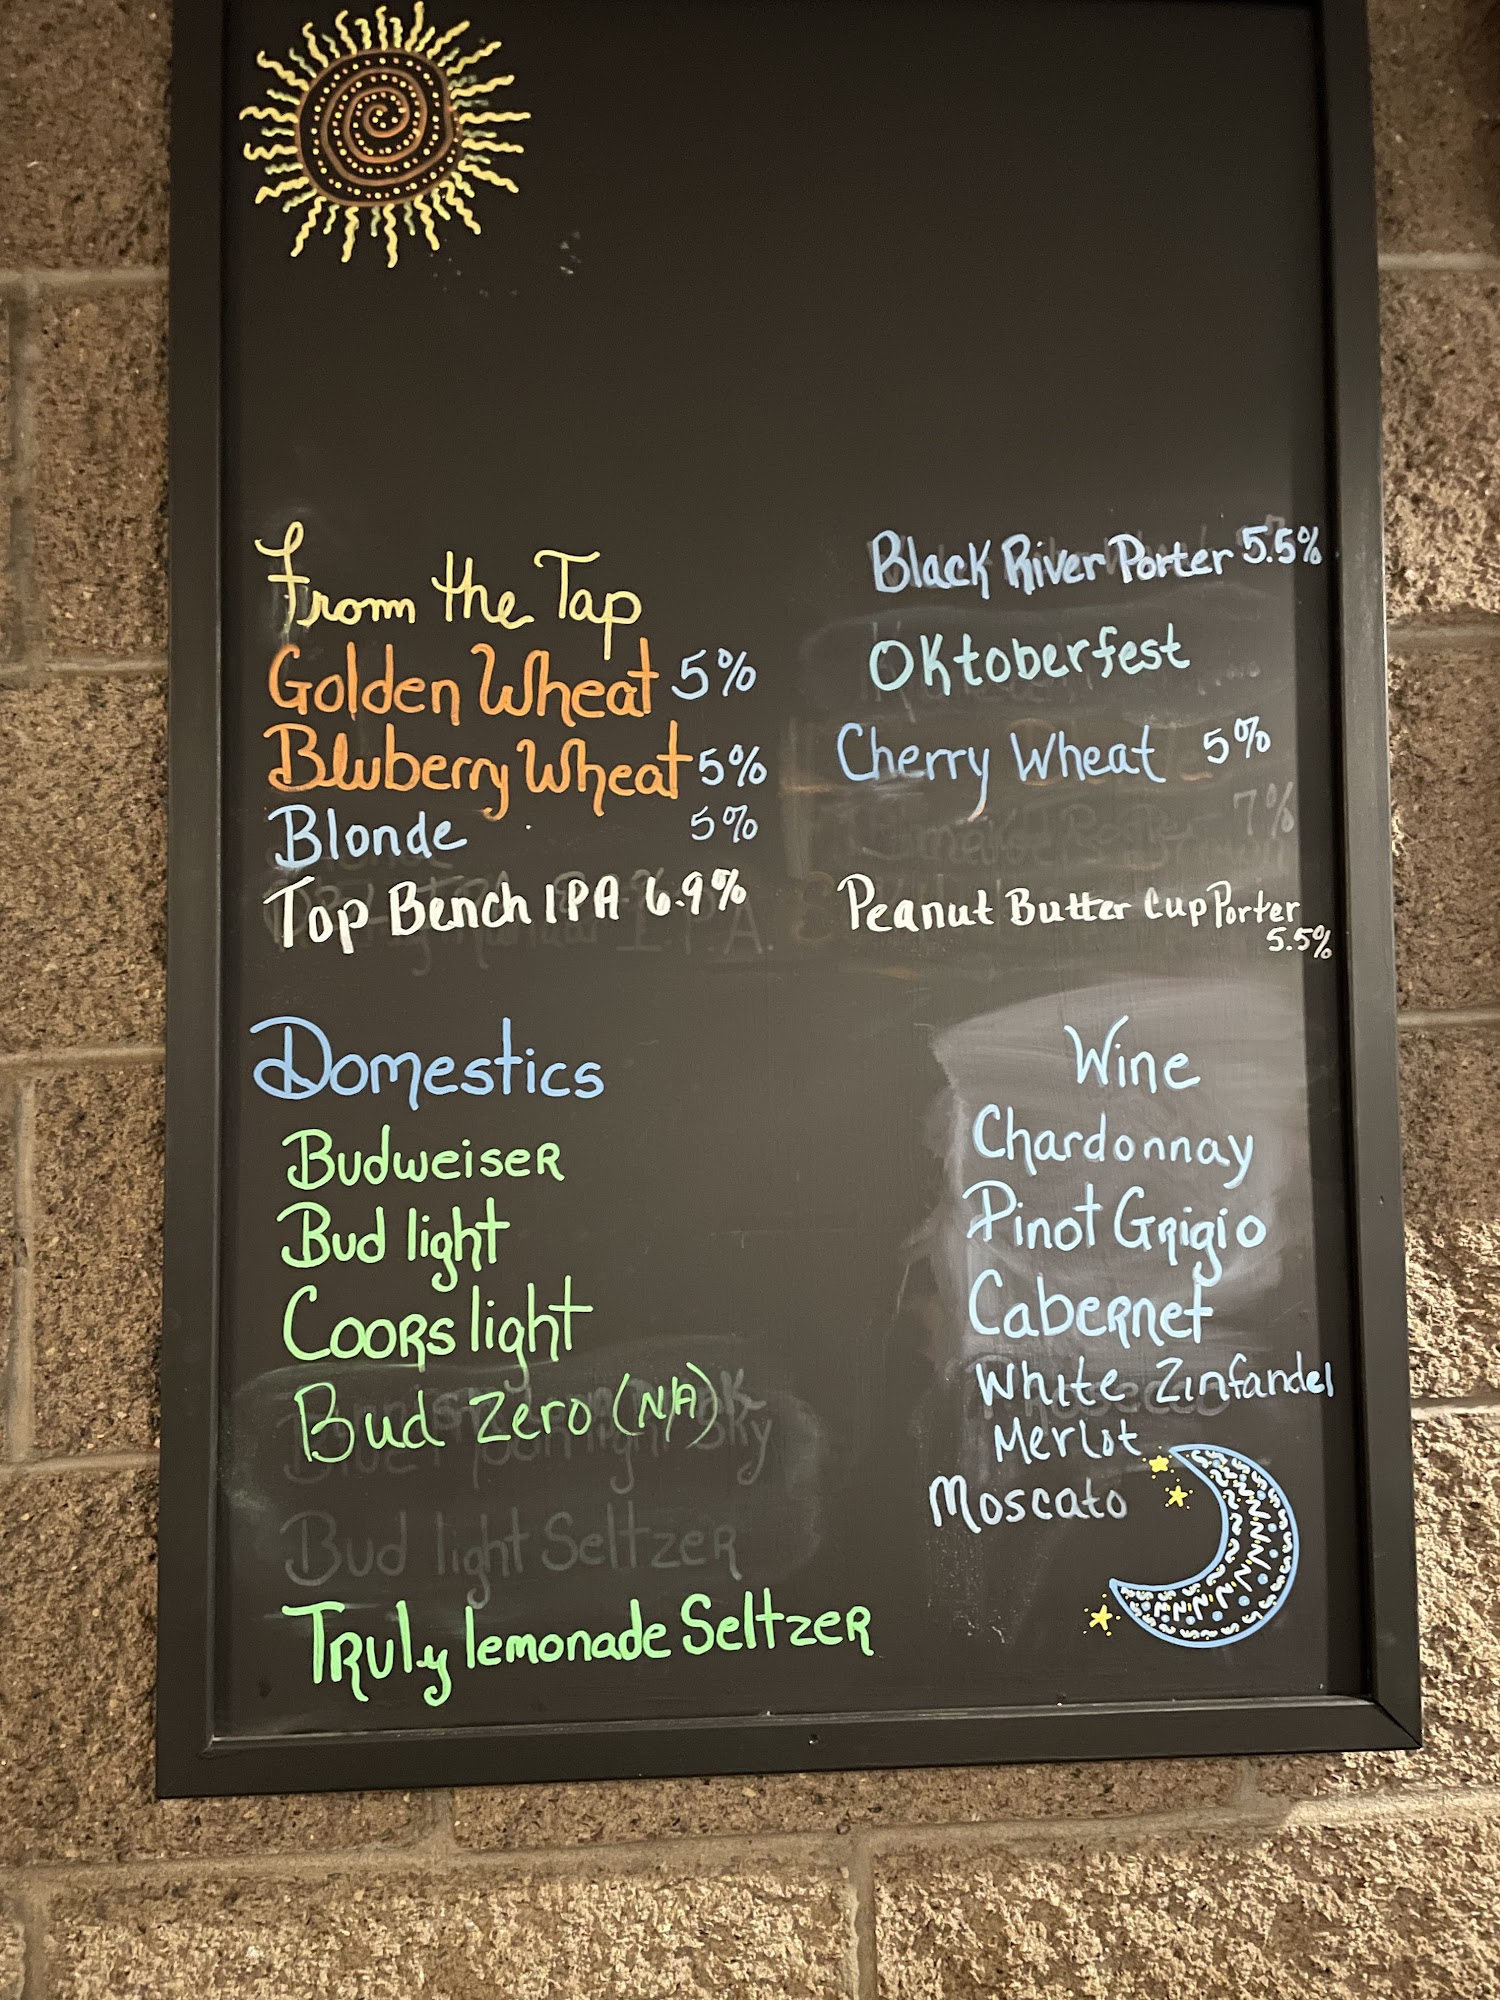 From the Tap
Golden Wheat 5%
Bluberry Wheat 5%
Blonde 5%
Top Bench IPA 6.9%
Black River Porter 5.5%
Oktoberfest
Cherry Wheat 5%
7%
Peanut Butter Cup Porter
5.5%
Domestics
Budweiser
Bud light
Coors light
Bud Zero (N/A)
Bud light Seltzer
Truly lemonade Seltzer
Wine
Chardonnay
Pinot Grigio
Cabernet
White Zinfandel
Merlot
Moscato